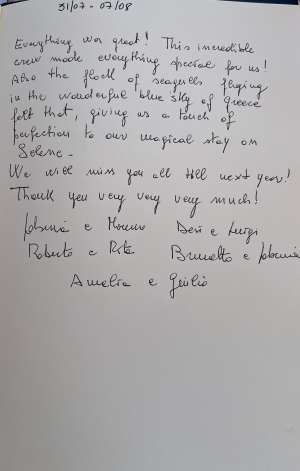 31/07 - 07/08
Everything was great! This incredible
crew made everything special for us!
Also the flock of seagulls flying
in the wonderful blue sky of Greece
felt that, giving us a touch of
perfection to our magical stay on
Selene -
We will miss you all till next year!
Thank you very very very much!
e Moreno Desi e Luigi
Roberto e Rita Brunetto e
Amelia e Giulio